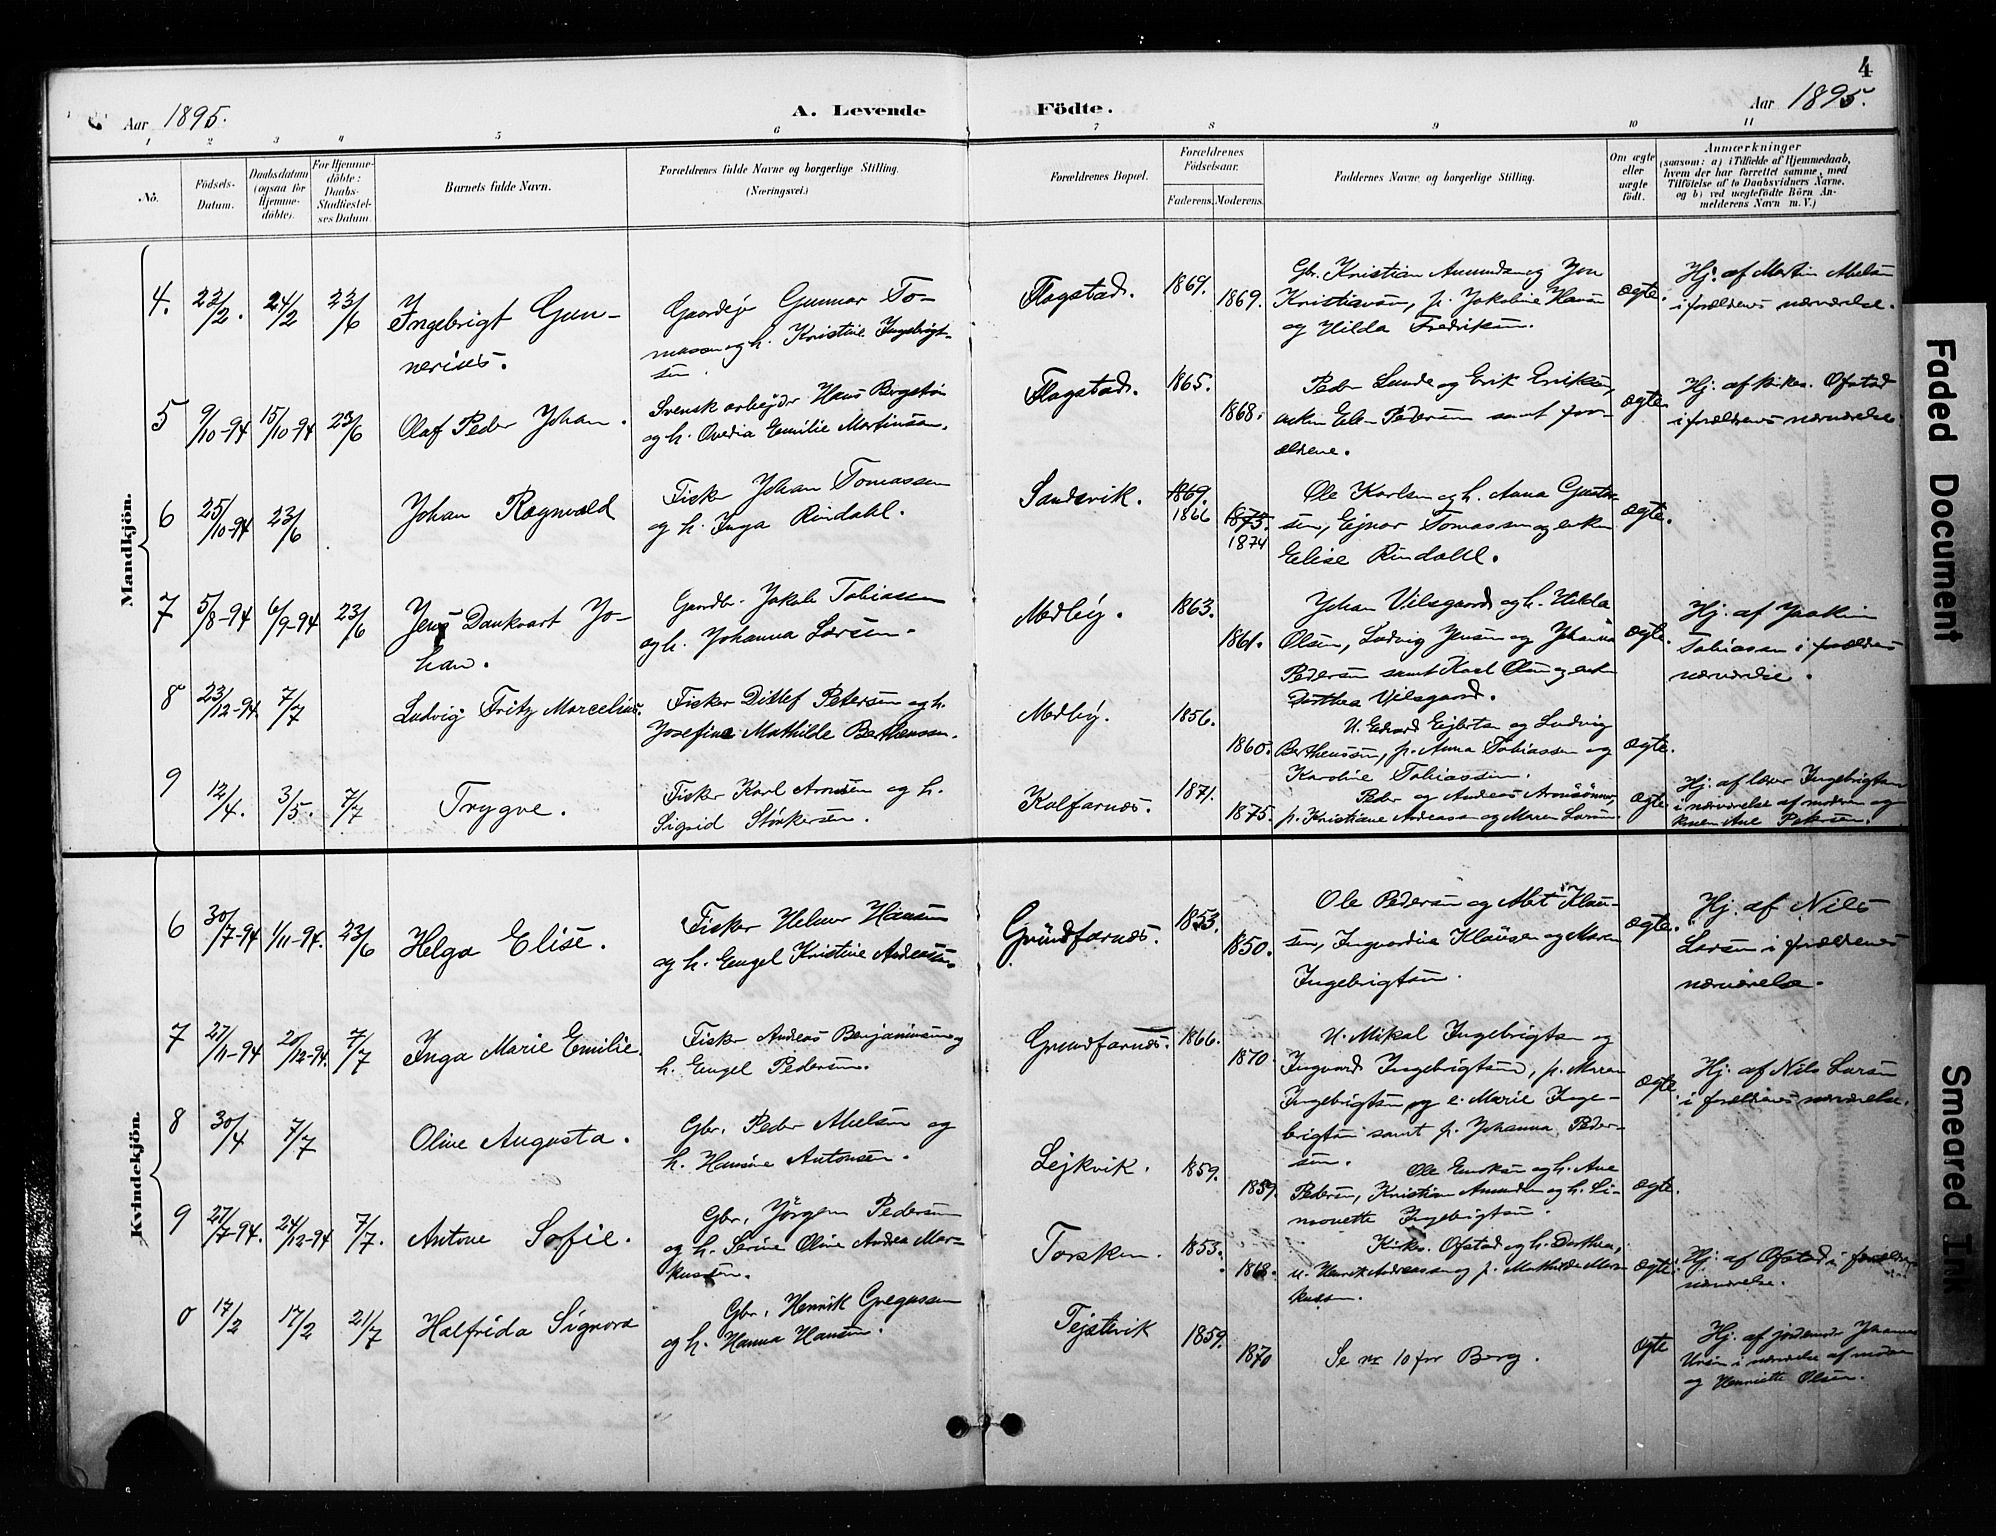 4
Aar 1895.
A. Levende Födte.
Aar 1895.
1 2 3 4 5 6 7 8 9 10 11
No.
Födsels-
Datum.
Daabsdatum
(ogsaa for
Hjemme-
döbte).
For Hjemme-
döbte:
Daabs-
Stadfæstel-
ses Datum.
Barnets fulde Navn.
Forældrenes fulde Navne og borgerlige Stilling.
(Næringsvei.)
Forældrenes Bopæl.
Forældrenes
Födselsaar.
Faderens. Moderens.
Faddernes Navne og borgerlige Stilling.
Om ægte
eller
uægte
födt.
Anmærkninger
(saasom: a) i Tilfælde af Hjemmedaab,
hvem der har forrettet samme, med
Tilföielse af to Daabsvidners Navne.
og b) ved uægtefödte Börn An-
melderens Navn m. V.)
Mandkjön.
4. 22/2. 24/2 23/6
Ingebrigt Gun-
nerius.
Gaardejr Gunnar To-
massen og h. Kristine Ingebrigt-
sen.
Flagstad.
1869. 1869.
Gbr. Kristian Amundsen og Jon
Kristiansen, p. Jakobine Hansen
og Hilda Fredriksen.
ægte.
Hj. af Martin Abelsen
i forældrenes nærværelse.
5 9/10-94 15/10-94 23/6
Olaf Peder Johan.
Svensk arbejder Hans Bergström
og h. Ovedia Emilie Martinsen.
Flagstad.
1865. 1868.
Peder Lunde og Erik Eriksen,
enken Pedersen samt for-
ældrene.
ægte.
Hj. af kirkes. Ofstad
i forældrenes nærværelse.
6 25/10-94 23/6
Johan Ragnvald
Fisker Johan Tomassen
og h. Inga Rindahl.
Sandsvik.
1869. 1866
1875. 1874
Ole Karlsen og h. Anna Gustav-
sen, Ejnar Tomassen og enken
Elise Rindahl.
ægte.
7 5/8-94 6/9-94 23/6
Jens Dankvart Jo-
han.
Gaardbr. Jakob Tobiassen
og h. Johanna Larsen.
Medby.
1863. 1861.
Johan Vilsgaard og h. Hilda
Olsen, Ludvig Jensen og Johanna
Pedersen samt Karl Olsen og enke
Dorthea Vilsgaard.
ægte.
Hj. af Joakim
Tobiassen i forældres
nærværelse.
8 23/12-94. 7/7
Ludvig Fritz Marcelius.
Fisker Ditlef Petersen og h.
Josefine Mathilde Berthensen.
Medby.
1856. 1860.
U. Edvard Ejlertsen og Ludvig
Berthensen, p. Anna Tobiassen og
Karoline Tobiassen.
ægte.
9 12/4. 3/5. 7/7
Trygve.
Fisker Karl Aronsen og h.
Sigrid Störkersen.
Kalfarnes.
1871. 1875.
Peder og Andreas Aronsönner,
p. Kristiane Andreassen og Maren Larsen.
ægte.
Hj. af lærer Ingebrigtsen
i nærværelse af moderen og
konen Ane Petersen.
Kvindekjön.
6 30/7-94 1/11-94. 23/6
Helga Elise.
Fisker Helmer Hansen
og h. Engel Kristine Andreassen.
Grundfarnes.
1853. 1850.
Ole Pedersen og Abet Klau-
sen, Ingvardine Klausen og Maren
Ingebrigtsen.
ægte.
Hj. af Nils
Larsen i forældrenes
nærværelse.
7 27/11-94 20/12-94. 7/7
Inga Marie Emilie.
Fisker Andreas Benjaminsen og
h. Engel Pedersen.
Grundfarnes.
1866. 1870.
U. Mikal Ingebrigtsen og
Ingvard Ingebrigtsen, p. Maren
Ingebrigtsen og e. Marie Inge-
brigtsen samt p. Johanna Peder-
sen.
ægte.
Hj. af Nils Larsen
i forældrenes nærværelse.
8 30/4 7/7
Oline Augusta.
Gbr. Peder Abelsen og
h. Hansine Antonsen.
Lejkvik.
1859. 1859.
Ole Enoksen og h. Ane
Pedersen, Kristian Amundsen og h. Li-
monette Ingebrigtsen.
ægte.
9 27/7-94. 24/12-94 7/7.
Antone Sofie.
Gbr. Jörgen Pedersen
og h. Serine Oline Andrea Mar-
kussen.
Torsken.
1853. 1868.
Kirkes. Ofstad og h. Dorthea,
u. Henrik Andreassen og p. Mathilde Mar-
kussen.
ægte.
Hj. af Ofstad i forældres
nærværelse.
0 17/2 17/2 21/7
Halfrida Signora
Gbr. Henrik Gregussen
og h. Hanna Hansen.
Tejstevik
1859. 1870
Se nr 10 for Berg.
ægte
Hj. af jordemoder Johanna
Ursin i nærværelse af moderen
og Henriette Olsen.
Faded Document
Smeared Ink